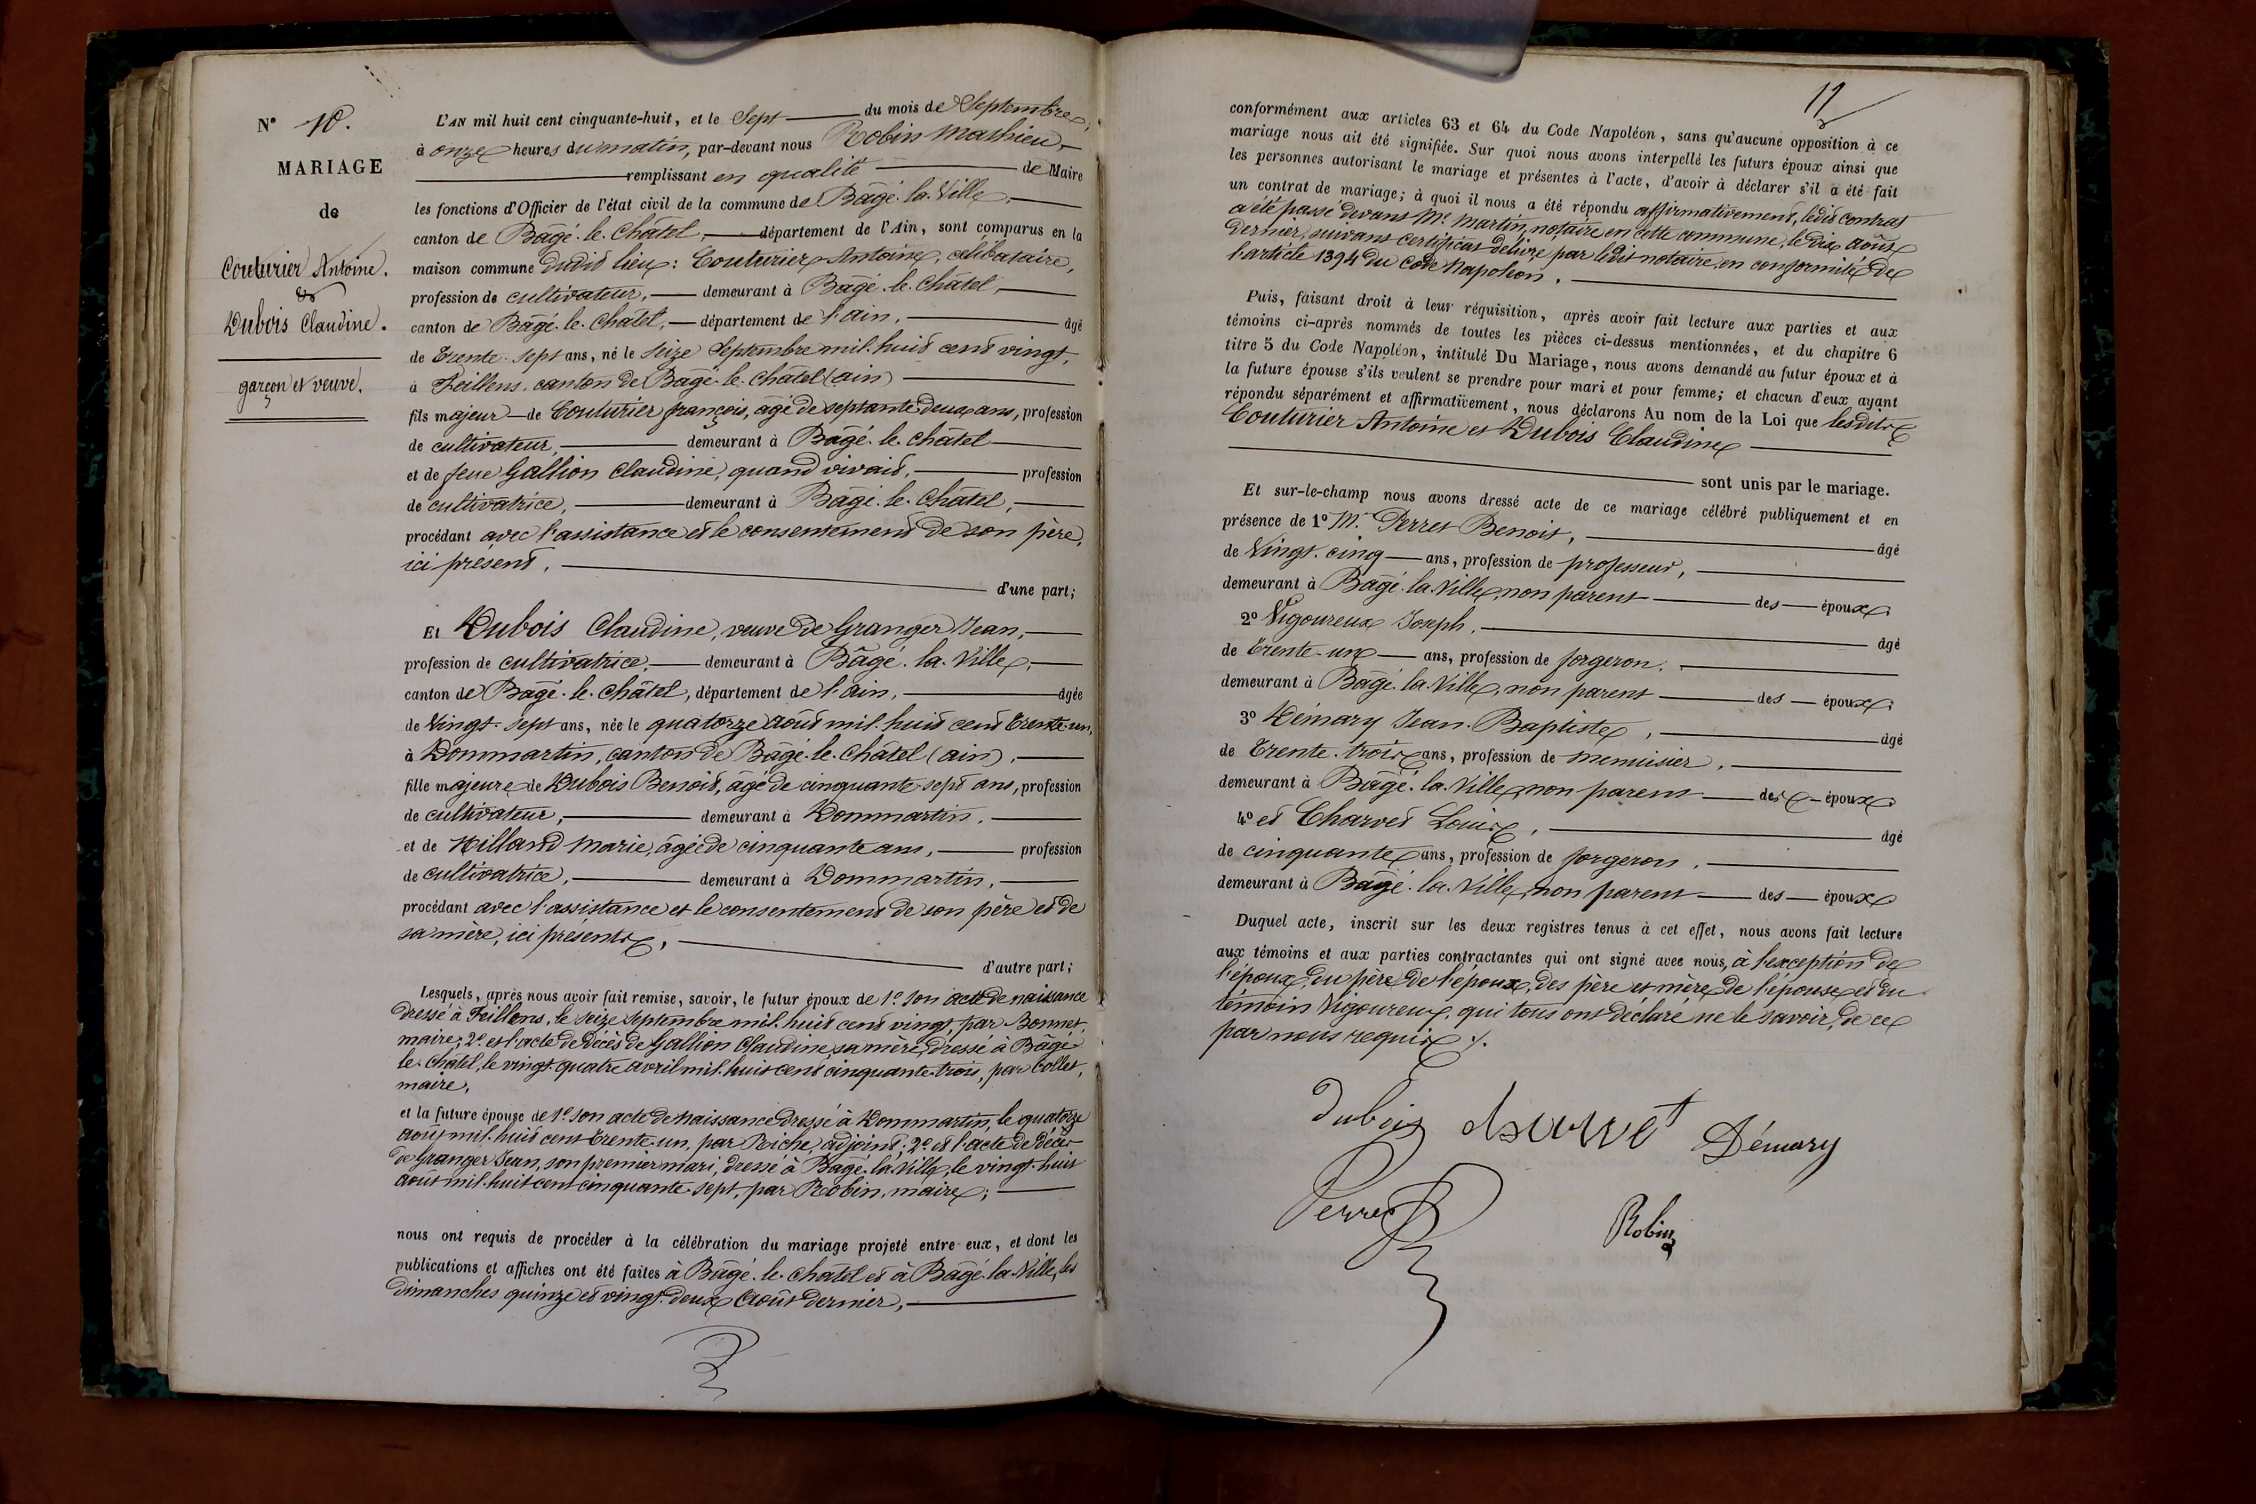 N° 10.
MARIAGE
de
Couturier Antoine.
et
Dubois Claudine.
garçon et veuve.
L'AN mil huit cent cinquante-huit, et le Sept du mois de Septembre,
à onze heures du matin, par-devant nous Robin Mathieu
remplissant en qualité de Maire
les fonctions d'Officier de l'état civil de la commune de Bâgé-la-Ville,
canton de Bâgé-le-Châtel, département de l'Ain, sont comparus en la
maison commune dudit lieu: Couturier Antoine, célibataire,
profession de cultivateur, demeurant à Bâgé-le-Châtel,
canton de Bâgé-le-Châtel, département de l'ain, âgé
de Trente-sept ans, né le seize Septembre mil-huit cent vingt,
à Feillens, canton de Bâgé-le-Châtel (ain)
fils majeur de Couturier françois, âgé de septante deux ans, profession
de cultivateur, demeurant à Bâgé-le-Châtel
et de feue Gallion Claudine, quand vivait, profession
de cultivatrice, demeurant à Bâgé-le-Châtel,
procédant avec l'assistance et le consentement de son père,
ici présent, d'une part;
Et Dubois Claudine, veuve de Granger Jean,
profession de cultivatrice, demeurant à Bâgé-la-Ville,
canton de Bâgé-le-Châtel, département de l'ain, âgée
de Vingt-sept ans, née le quatorze août mil-huit cent Trente-un,
à Dommartin, canton de Bâgé-le-Châtel (ain),
fille majeure de Dubois Benoit, âgé de cinquante-sept ans, profession
de cultivateur, demeurant à Dommartin,
et de Milland Marie, âgée de cinquante ans, profession
de cultivatrice, demeurant à Dommartin,
procédant avec l'assistance et le consentement de son père et de
sa mère, ici présents, d'autre part;
Lesquels, après nous avoir fait remise, savoir, le futur époux de 1° son acte de naissance
dressé à Feillens, le seize septembre mil-huit cent vingt, par Bonnet,
maire; 2° et l'acte de décès de Gallion Claudine, sa mère, dressé à Bâgé-
le-Châtel, le vingt-quatre avril mil-huit cent cinquante-trois, par Collet,
maire,
et la future épouse de 1° son acte de naissance dressé à Dommartin, le quatorze
août mil-huit cent trente-un, par Riche, adjoint; 2° et l'acte de décès
de Granger Jean, son premier mari, dressé à Bâgé-la-Ville, le vingt-huit
août mil-huit cent cinquante-sept, par Robin, maire;
nous ont requis de procéder à la célébration du mariage projeté entre eux, et dont les
publications et affiches ont été faites à Bâgé-le-Châtel et à Bâgé-la-Ville, les
dimanches quinze et vingt-deux Août dernier,
11
conformément aux articles 63 et 64 du Code Napoléon, sans qu'aucune opposition à ce
mariage nous ait été signifiée. Sur quoi nous avons interpellé les futurs époux ainsi que
les personnes autorisant le mariage et présentes à l'acte, d'avoir à déclarer s'il a été fait
un contrat de mariage; à quoi il nous a été répondu affirmativement, ledit contrat
a été passé devant Me Martin, notaire en cette commune, le dix août
dernier, suivant certificat délivré par ledit notaire en conformité de
l'article 1394 du Code Napoléon.
Puis, faisant droit à leur réquisition, après avoir fait lecture aux parties et aux
témoins ci-après nommés de toutes les pièces ci-dessus mentionnées, et du chapitre 6
titre 5 du Code Napoléon, intitulé Du Mariage, nous avons demandé au futur époux et à
la future épouse s'ils veulent se prendre pour mari et pour femme; et chacun d'eux ayant
répondu séparément et affirmativement, nous déclarons Au nom de la Loi que lesdits
Couturier Antoine et Dubois Claudine
sont unis par le mariage.
Et sur-le-champ nous avons dressé acte de ce mariage célébré publiquement et en
présence de 1° M. Perret Benoit, âgé
de Vingt-cinq ans, profession de professeur,
demeurant à Bâgé-la-Ville, non parent des époux;
2° Vigoureux Joseph, âgé
de Trente-un ans, profession de forgeron,
demeurant à Bâgé-la-Ville, non parent des époux;
3° Démary Jean-Baptiste, âgé
de Trente-trois ans, profession de menuisier,
demeurant à Bâgé-la-Ville, non parent des époux;
4° et Charvet Louis, âgé
de cinquante ans, profession de forgeron,
demeurant à Bâgé-la-Ville, non parent des époux
Duquel acte, inscrit sur les deux registres tenus à cet effet, nous avons fait lecture
aux témoins et aux parties contractantes qui ont signé avec nous, à l'exception de
l'époux, du père de l'époux, des père et mère de l'épouse et du
témoin Vigoureux, qui tous ont déclaré ne le savoir, de ce
par nous requis.
Dubois charvet Démary
Perret
Robin